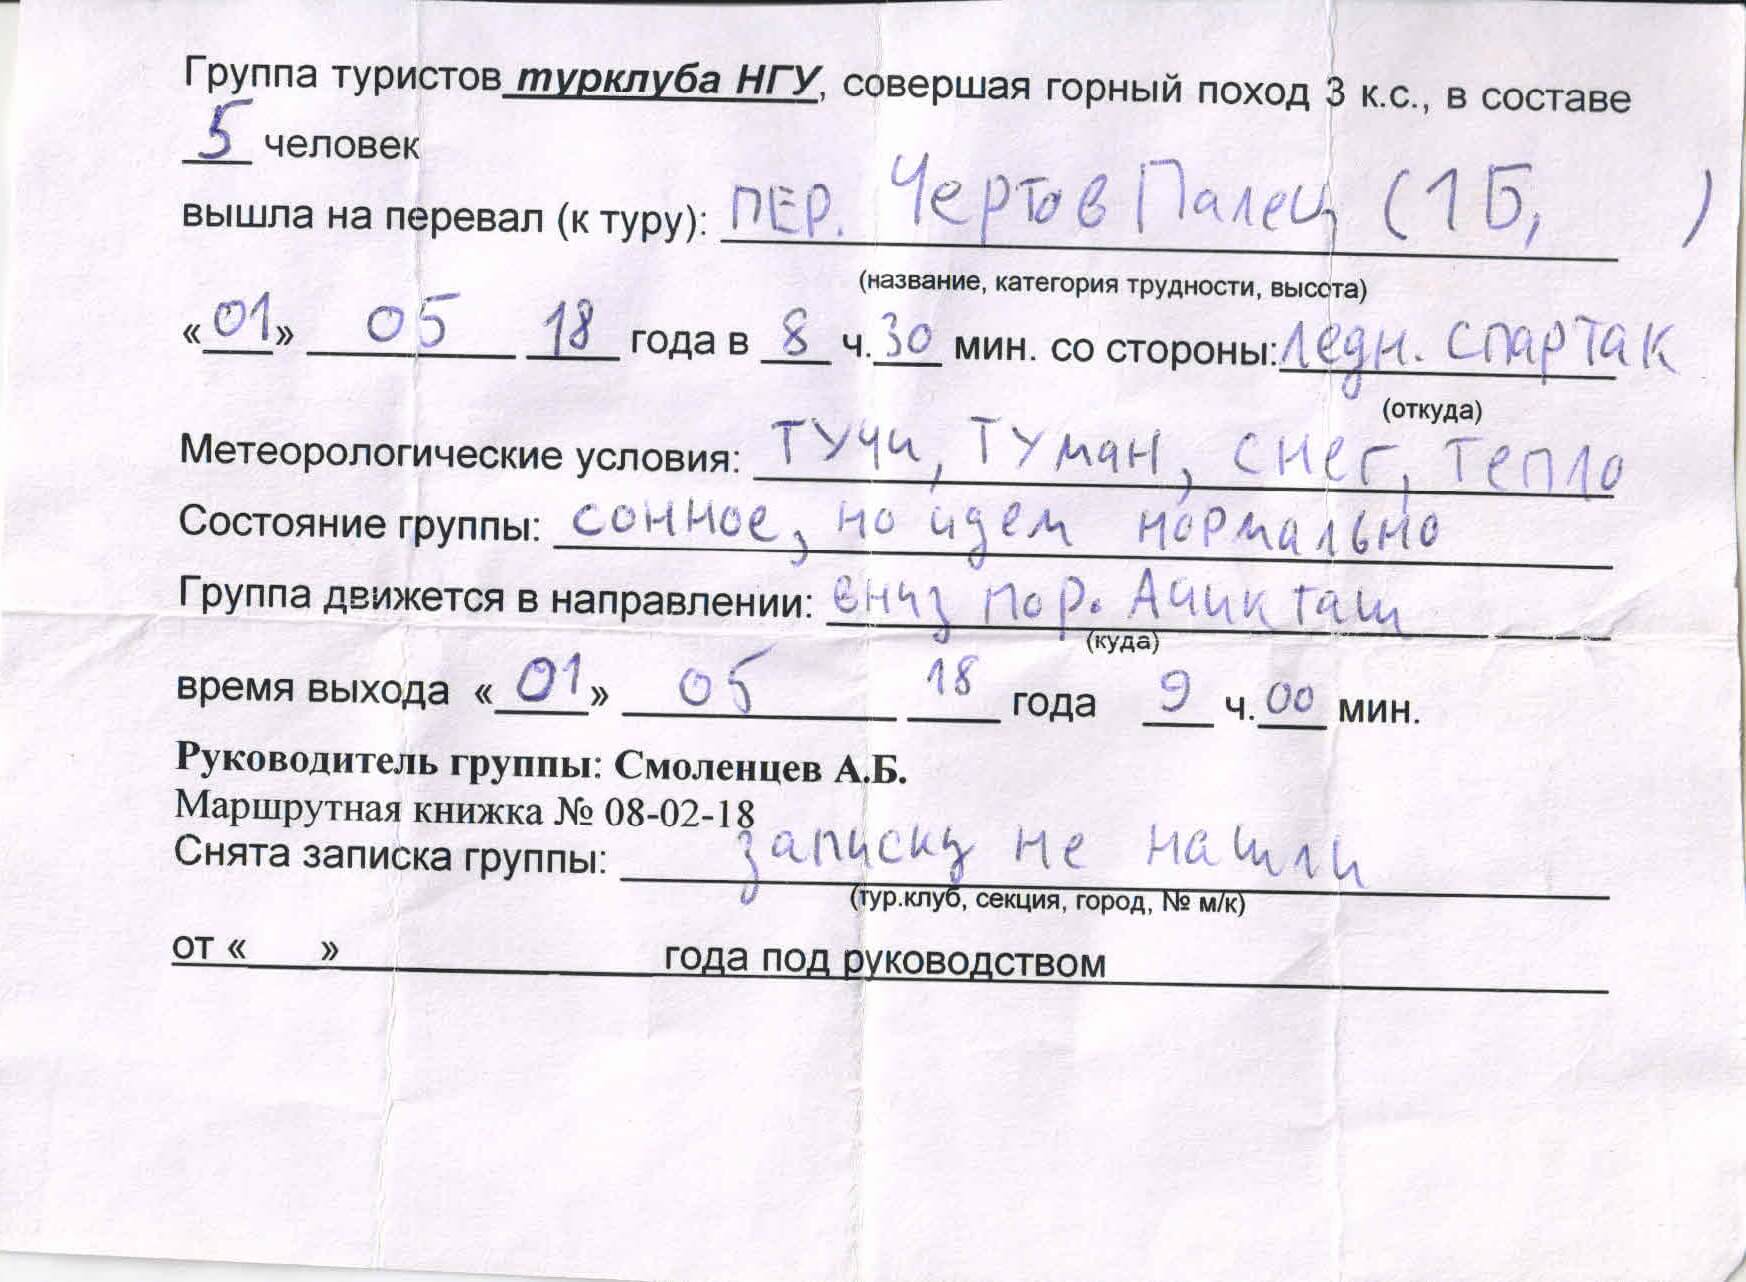 Группа туристов турклуба НГУ, совершая горный поход 3 к.с., в составе
5 человек
вышла на перевал (к туру): ПЕР. Чертов Палец (1Б, )
(название, категория трудности, высота)
«01» 05 18 года в 8 ч. 30 мин. со стороны: ледн. Спартак
(откуда)
Метеорологические условия: тучи, туман, снег, тепло
Состояние группы: сонное, но идем нормально
Группа движется в направлении: вниз по р. Ачикташ
(куда)
время выхода «01» 05 18 года 9 ч. 00 мин.
Руководитель группы: Смоленцев А.Б.
Маршрутная книжка № 08-02-18
Снята записка группы: записку не нашли
(тур.клуб, секция, город, № м/к)
от « » года под руководством